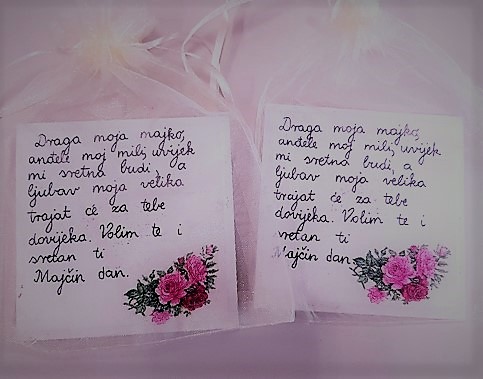 Draga moja majko,
anđele moj mili, uvijek
mi sretna budi, a
ljubav moja velika
trajat će za tebe
dovijeka. Volim te i
sretan ti
Majčin dan.
Draga moja majko,
anđele moj mili, uvijek
mi sretna budi, a
ljubav moja velika
trajat će za tebe
dovijeka. Volim te i
sretan ti
Majčin dan.